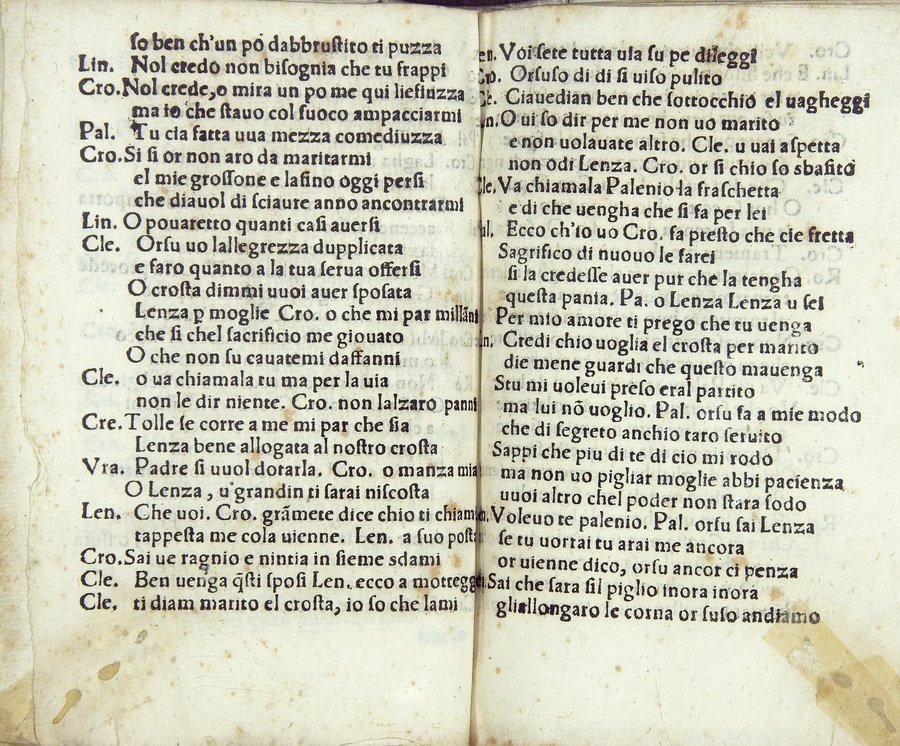 ſo ben ch'un po dabbruſtito ti puzza
Lin. Nol credo non biſognia che tu frappi
Cro. Nol crede, o mira un po me qui lieſiuzza
ma io che ſtauo col fuoco ampacciarmi
Pal. Tu cia fatta uua mezza comediuzza
Cro. Si ſi or non aro da maritarmi
el mie groſſone e laſino oggi perſi
che diauol di ſciaure anno ancontrarmi
Lin. O pouaretto quanti caſi auerſi
Cle. Orſu uo lallegrezza dupplicata
e faro quanto a la tua ſerua offerſi
O croſta dimmi uuoi auer ſpoſata
Lenza p moglie Cro. o che mi par millãni
che ſi chel ſacrificio me giouato
O che non fu cauatemi daffanni
Cle. o ua chiamala tu ma per la uia
non le dir niente. Cro. non lalzaro panni
Cre. Tolle ſe corre a me mi par che ſia
Lenza bene allogata al noſtro croſta
Vra. Padre ſi uuol dotarla. Cro. o manza mia
O Lenza, u grandin ti ſarai niſcoſta
Len. Che uoi. Cro. grãmete dice chio ti chiam
tappeſta me cola uienne. Len. a ſuo poſta
Cro. Sai ue ragnio e nintia in ſieme sdami
Cle. Ben uenga q̃ſti ſpoſi Len. ecco a mottegg
Cle. ti diam marito el croſta, io ſo che lami
en. Voi ſete tutta uia ſu pe dileggi
Cro. Orſuſo di di ſi uiſo pulito
Cle. Ciauedian ben che ſottocchio el uagheggi
en. O ui ſo dir per me non uo marito
e non uolauate altro. Cle. u uai aſpetta
non odi Lenza. Cro. or ſi chio ſo sbaſito
Cle. Va chiamala Palenio la fraſchetta
e di che uengha che ſi fa per lei
al. Ecco ch'io uo Cro. fa preſto che cie fretta
Sagrifico di nuouo le farei
ſi la credeſſe auer pur che la tengha
queſta pania. Pa. o Lenza Lenza u ſei
Per mio amore ti prego che tu uenga
en. Credi chio uoglia el croſta per marito
die mene guardi che queſto mauenga
Stu mi uoleui preſo eral partito
ma lui nõ uoglio. Pal. orſu fa a mie modo
che di ſegreto anchio taro ſeruito
Sappi che piu di te di cio mi rodo
ma non uo pigliar moglie abbi pacienza
uuoi altro chel poder non ſtara ſodo
en. Voleuo te palenio. Pal. orſu ſai Lenza
ſe tu uorrai tu arai me ancora
or uienne dico, orſu ancor ci penza
en. Sai che ſara ſil piglio inora inora
gliallongaro le corna or ſuſo andiamo